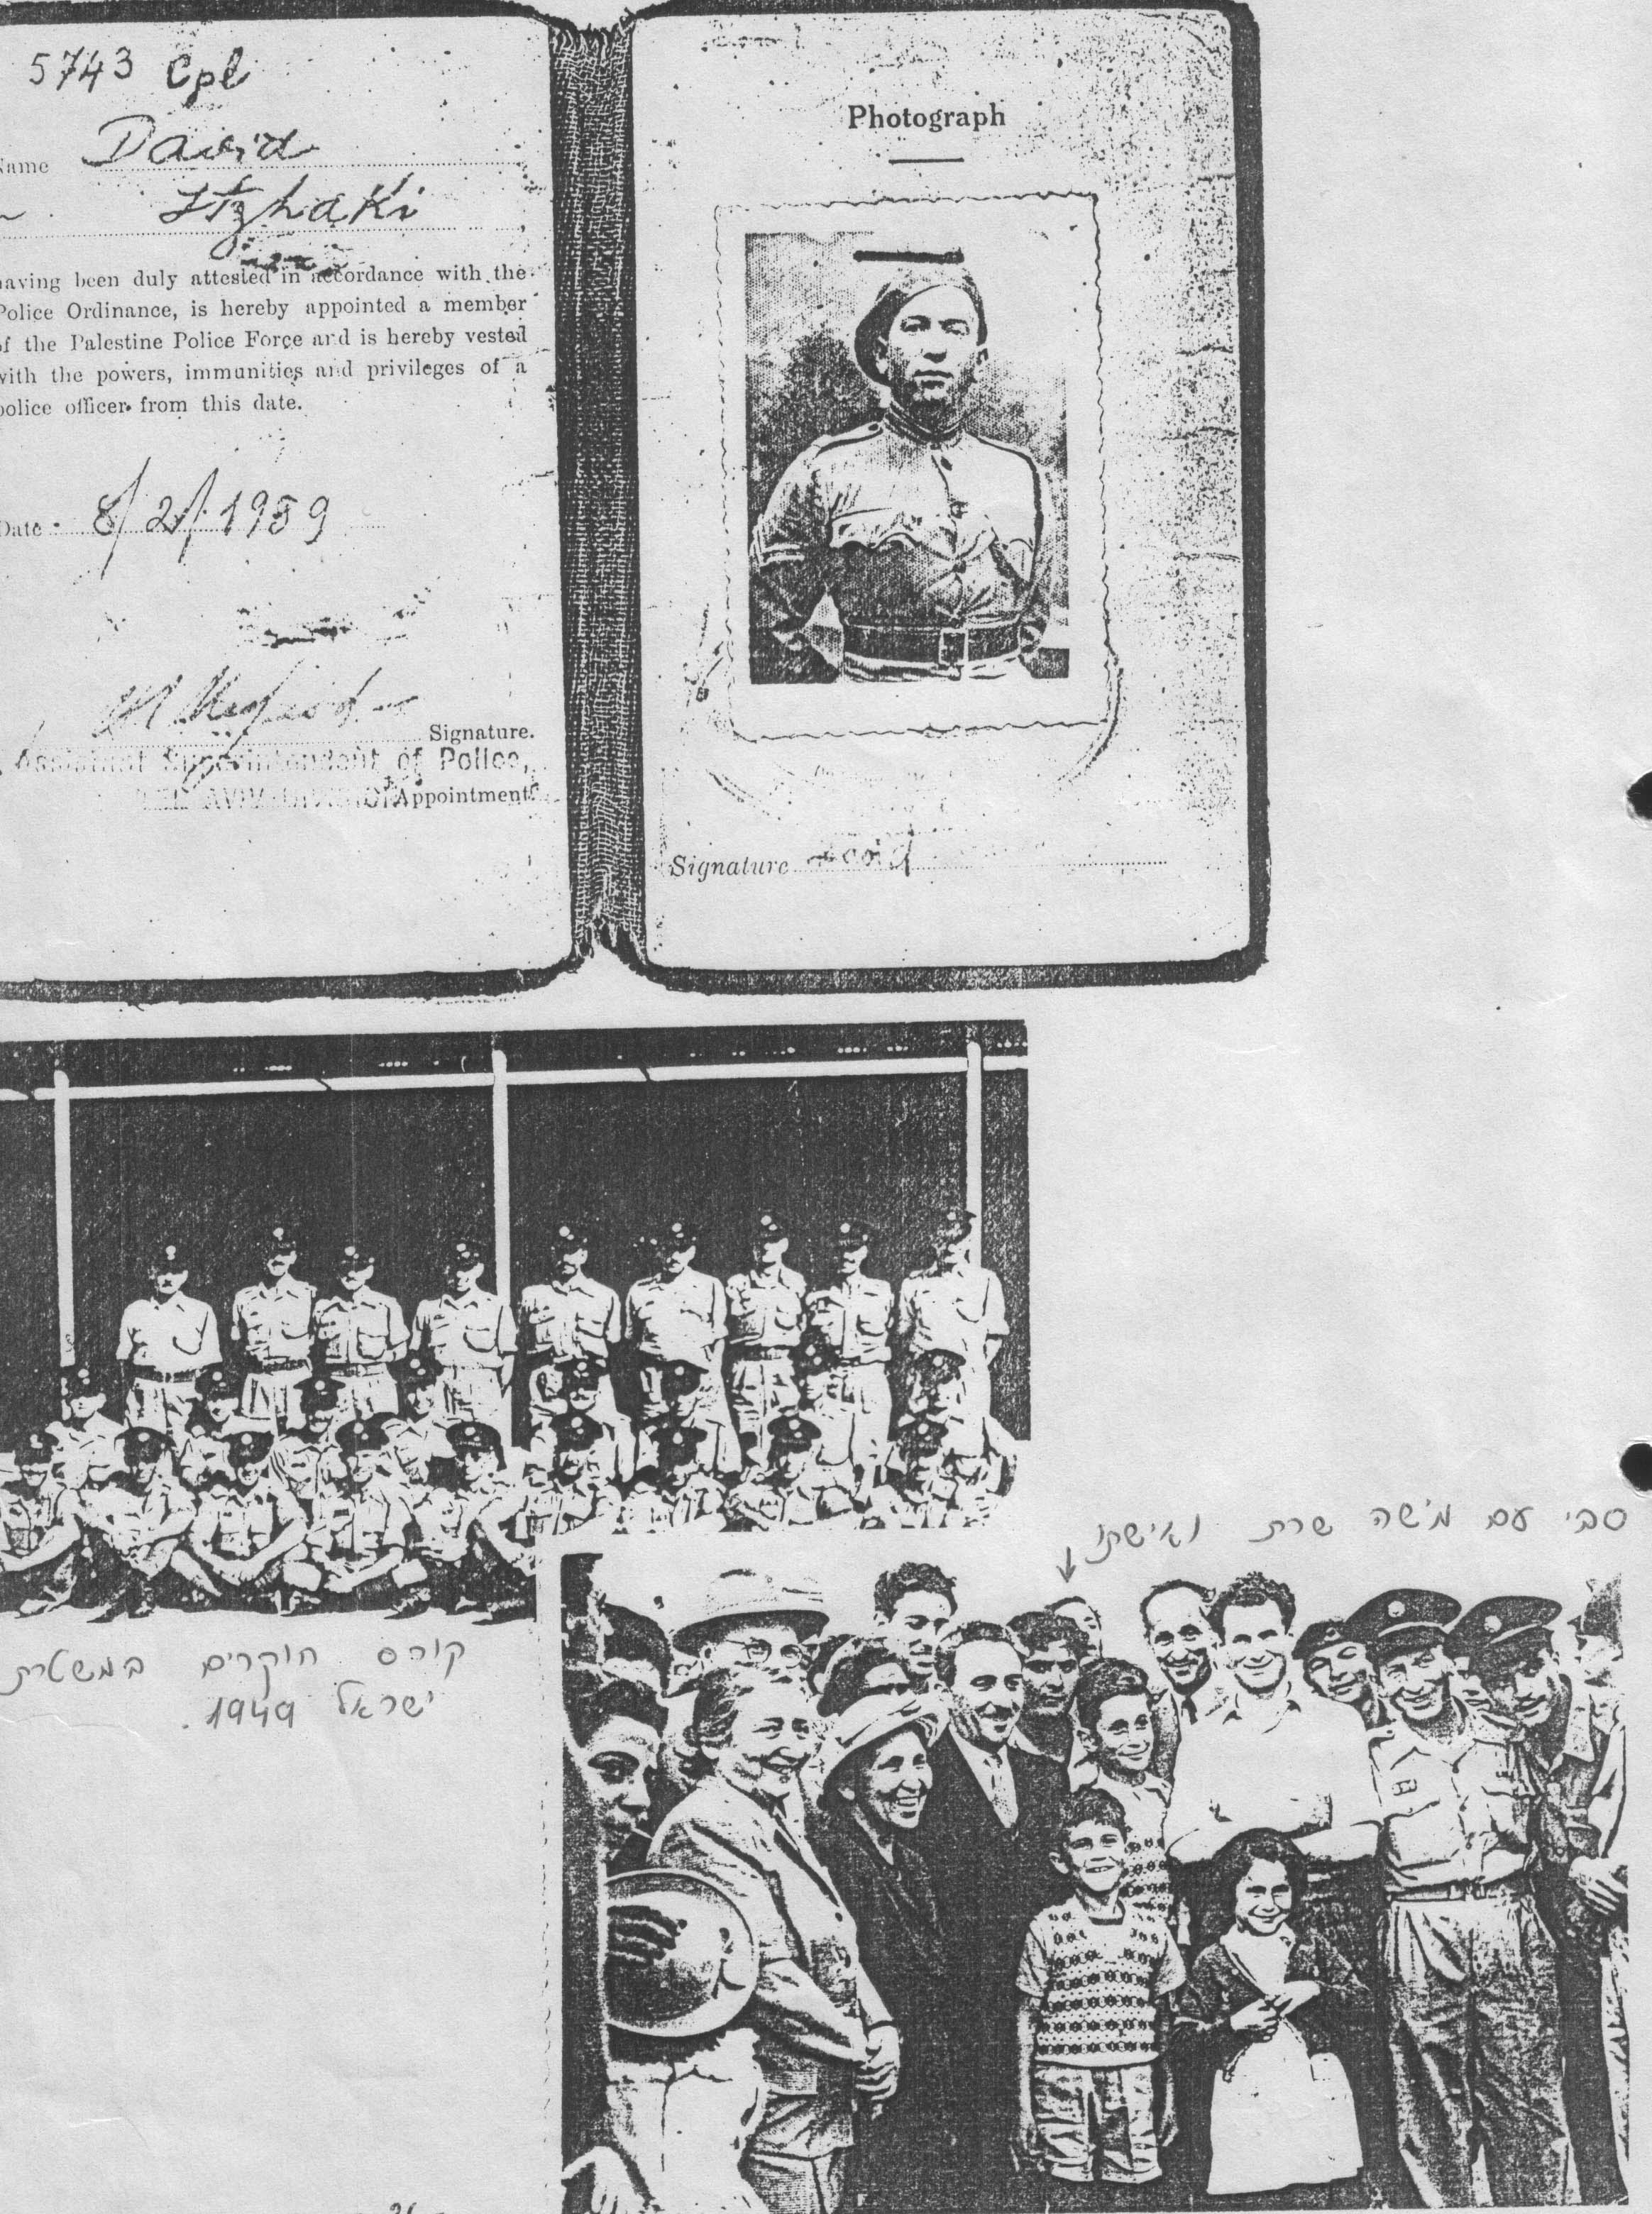 5743 Cpl
Name David
Itzhaki
having been duly attested in accordance with the
Police Ordinance, is hereby appointed a member
of the Palestine Police Force and is hereby vested
with the powers, immunities and privileges of a
police officer from this date.
Date 8/2/1939
Signature.
Assistant Superintendent of Police,
TEL AVIV DIVISION Appointment
Photograph
Signature David
סבי עם משה שרת ואישתו
קורס חוקרים במשטרת
ישראל 1949.